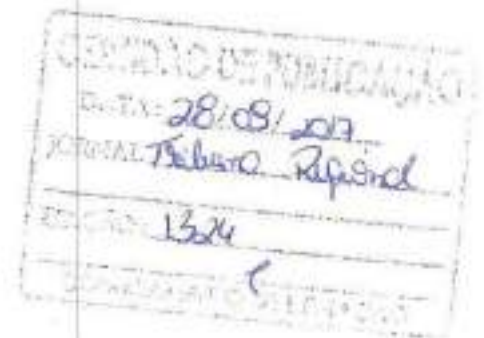 CERTIDÃO DE PUBLICAÇÃO
DATA: 28/08/2017
JORNAL Tribuna Regional
EDIÇÃO: 1324